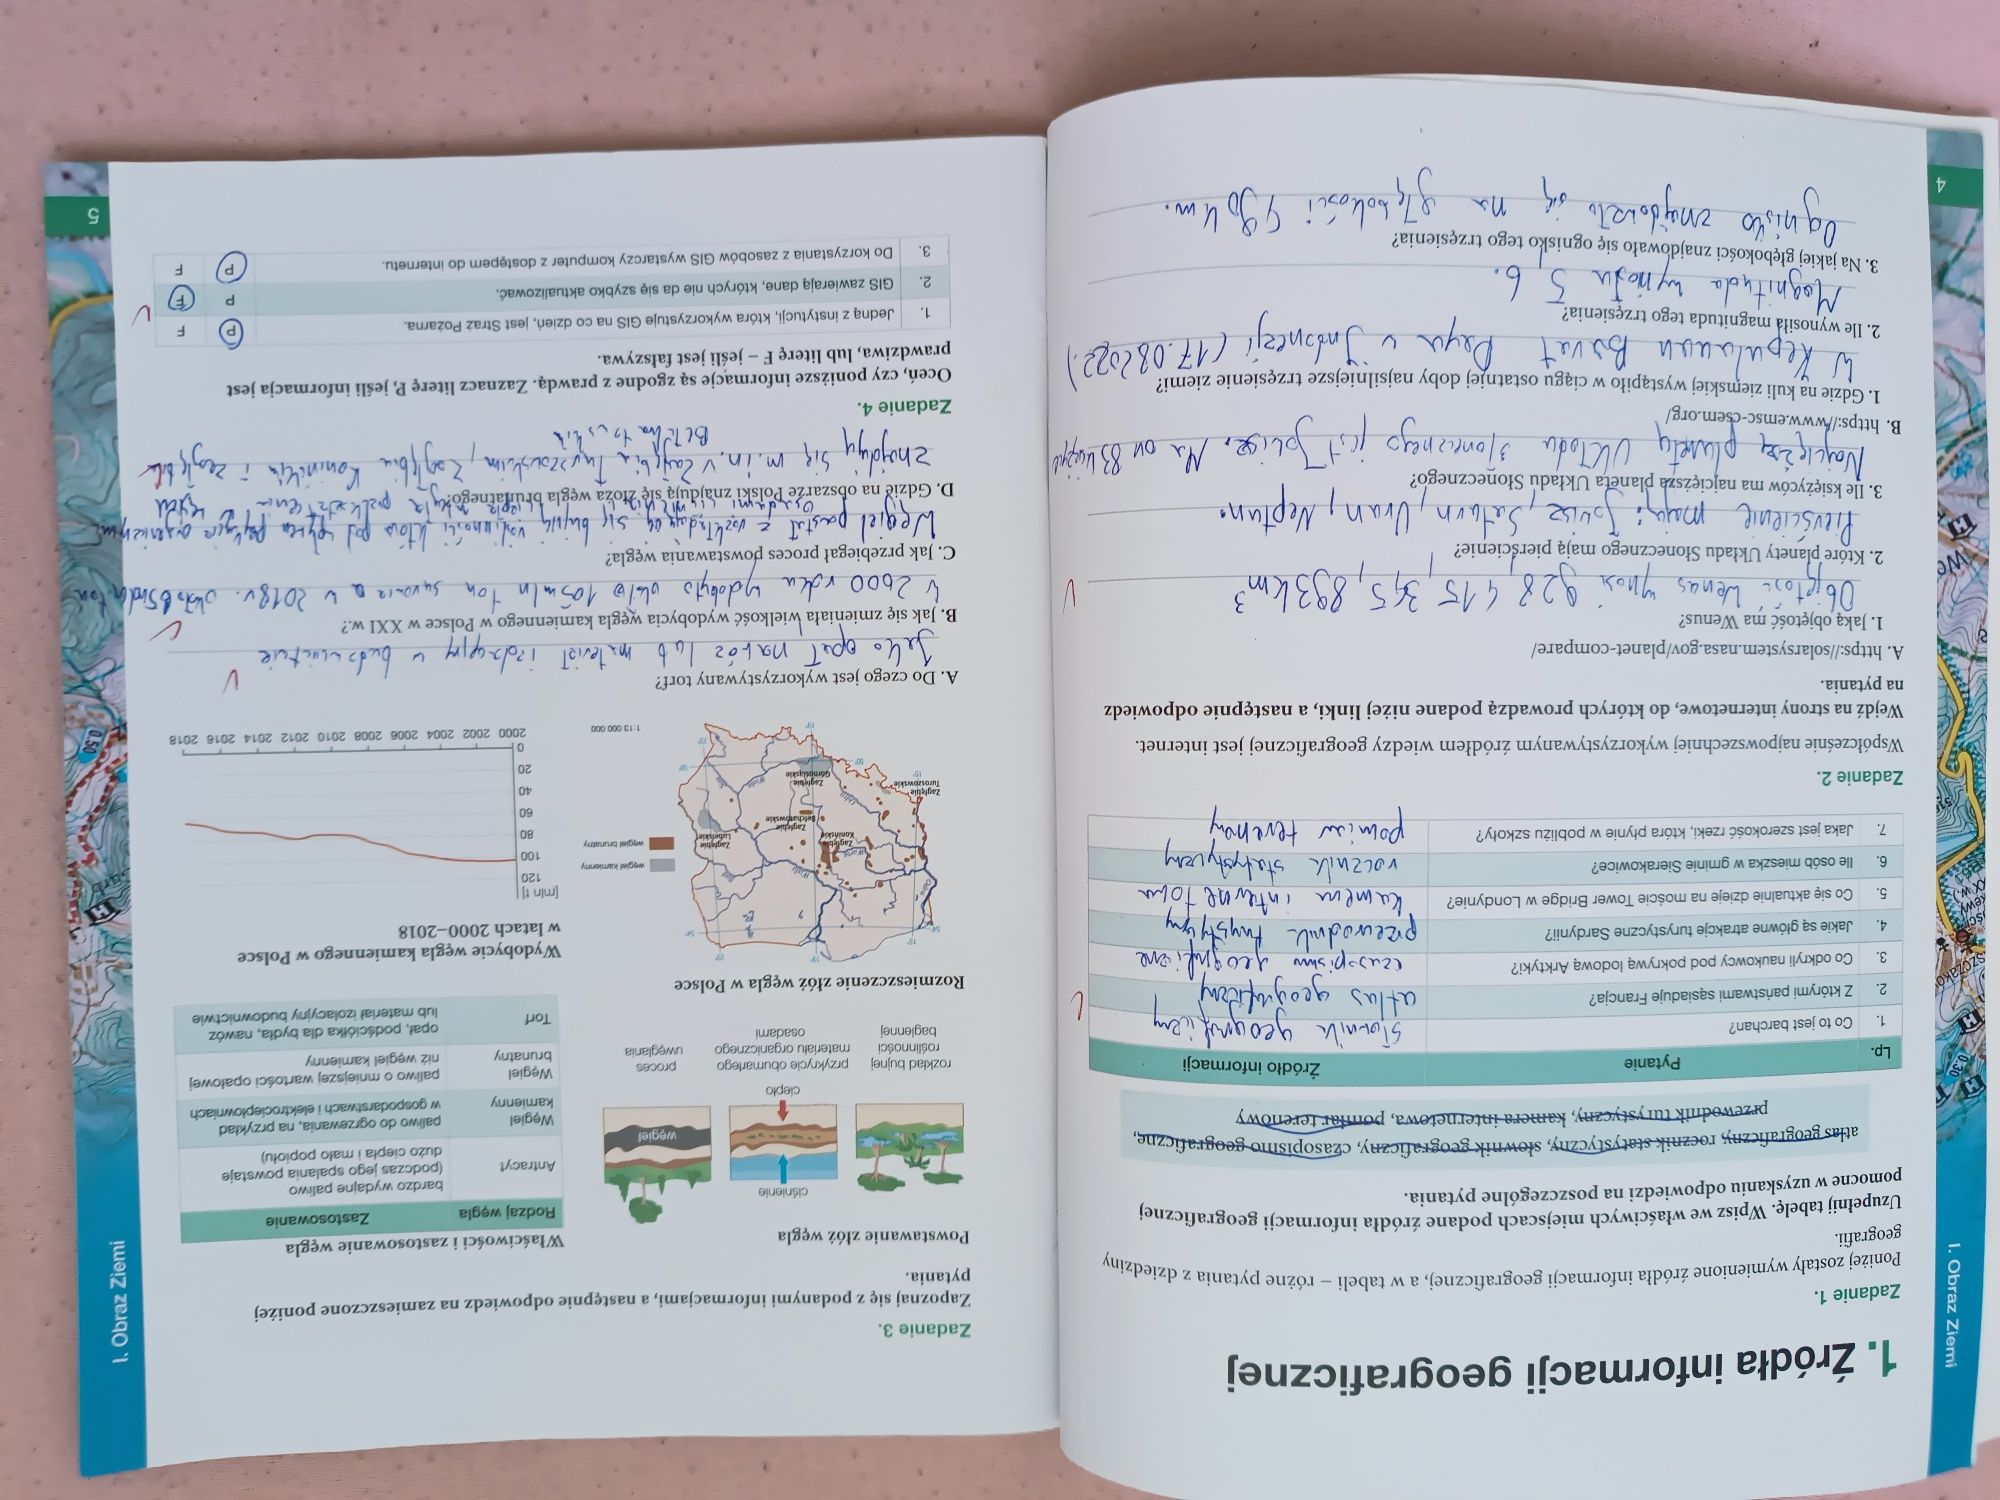 I. Obraz Ziemi
1. Źródła informacji geograficznej
Zadanie 1.
Poniżej zostały wymienione źródła informacji geograficznej, a w tabeli – różne pytania z dziedziny
geografii.
Uzupełnij tabelę. Wpisz we właściwych miejscach podane źródła informacji geograficznej
pomocne w uzyskaniu odpowiedzi na poszczególne pytania.
atlas geograficzny, rocznik statystyczny, słownik geograficzny, czasopismo geograficzne,
przewodnik turystyczny, kamera internetowa, pomiar terenowy
Lp. Pytanie Źródło informacji
1. Co to jest barchan? słownik geograficzny
2. Z którymi państwami sąsiaduje Francja? atlas geograficzny
3. Co odkryli naukowcy pod pokrywą lodową Arktyki? czasopismo geograficzne
4. Jakie są główne atrakcje turystyczne Sardynii? przewodnik turystyczny
5. Co się aktualnie dzieje na moście Tower Bridge w Londynie? kamera internetowa
6. Ile osób mieszka w gminie Sierakowice? rocznik statystyczny
7. Jaka jest szerokość rzeki, która płynie w pobliżu szkoły? pomiar terenowy
Zadanie 2.
Współcześnie najpowszechniej wykorzystywanym źródłem wiedzy geograficznej jest internet.
Wejdź na strony internetowe, do których prowadzą podane niżej linki, a następnie odpowiedz
na pytania.
A. https://solarsystem.nasa.gov/planet-compare/
1. Jaką objętość ma Wenus?
Objętość Wenus wynosi 928 415 345,893 km³
2. Które planety Układu Słonecznego mają pierścienie?
Pierścienie mają: Jowisz, Saturn, Uran, Neptun.
3. Ile księżyców ma najcięższa planeta Układu Słonecznego?
Najcięższą planetą Układu Słonecznego jest Jowisz. Ma on 83 księżyce
B. https://www.emsc-csem.org/
1. Gdzie na kuli ziemskiej wystąpiło w ciągu ostatniej doby najsilniejsze trzęsienie ziemi?
W Kepulauan Barat Daya w Indonezji (17.08.2022.)
2. Ile wynosiła magnituda tego trzęsienia?
Magnituda wynosiła 5.6.
3. Na jakiej głębokości znajdowało się ognisko tego trzęsienia?
Ognisko znajdowało się na głębokości 490 km.
4
I. Obraz Ziemi
Zadanie 3.
Zapoznaj się z podanymi informacjami, a następnie odpowiedz na zamieszczone poniżej
pytania.
Powstawanie złóż węgla
ciśnienie
węgiel
ciepło
rozkład bujnej
roślinności
bagiennej
przykrycie obumarłego
materiału organicznego
osadami
proces
uwęglania
Właściwości i zastosowanie węgla
Rodzaj węgla Zastosowanie
Antracyt bardzo wydajne paliwo
(podczas jego spalania powstaje
dużo ciepła i mało popiołu)
Węgiel
kamienny paliwo do ogrzewania, na przykład
w gospodarstwach i elektrociepłowniach
Węgiel
brunatny paliwo o mniejszej wartości opałowej
niż węgiel kamienny
Torf opał, podściółka dla bydła, nawóz
lub materiał izolacyjny budownictwie
Rozmieszczenie złóż węgla w Polsce
węgiel kamienny
węgiel brunatny
Zagłębie
Konińskie
Zagłębie
Bełchatowskie
Zagłębie
Lubelskie
Zagłębie
Turoszowskie
Zagłębie
Górnośląskie
Odra
Warta
Wisła
1:13 000 000
Wydobycie węgla kamiennego w Polsce
w latach 2000–2018
[mln t]
120
100
80
60
40
20
0
2000 2002 2004 2006 2008 2010 2012 2014 2016 2018
A. Do czego jest wykorzystywany torf?
Jako opał nawóz lub materiał izolacyjny w budownictwie
B. Jak się zmieniała wielkość wydobycia węgla kamiennego w Polsce w XXI w.?
W 2000 roku wydobyto około 105 mln ton surowca a w 2018 r. około
C. Jak przebiegał proces powstawania węgla?
Węgiel powstał z rozkładającej się bujnej roślinności która pod wpływem
D. Gdzie na obszarze Polski znajdują się złoża węgla brunatnego?
Znajdują się m.in. w Zagłębiu Turoszowskim, Zagłębiu Konińskim i zagłębiu
Bełchatowskim
Zadanie 4.
Oceń, czy poniższe informacje są zgodne z prawdą. Zaznacz literę P, jeśli informacja jest
prawdziwa, lub literę F – jeśli jest fałszywa.
1. Jedną z instytucji, która wykorzystuje GIS na co dzień, jest Straż Pożarna. P F
2. GIS zawierają dane, których nie da się szybko aktualizować. P F
3. Do korzystania z zasobów GIS wystarczy komputer z dostępem do internetu. P F
5